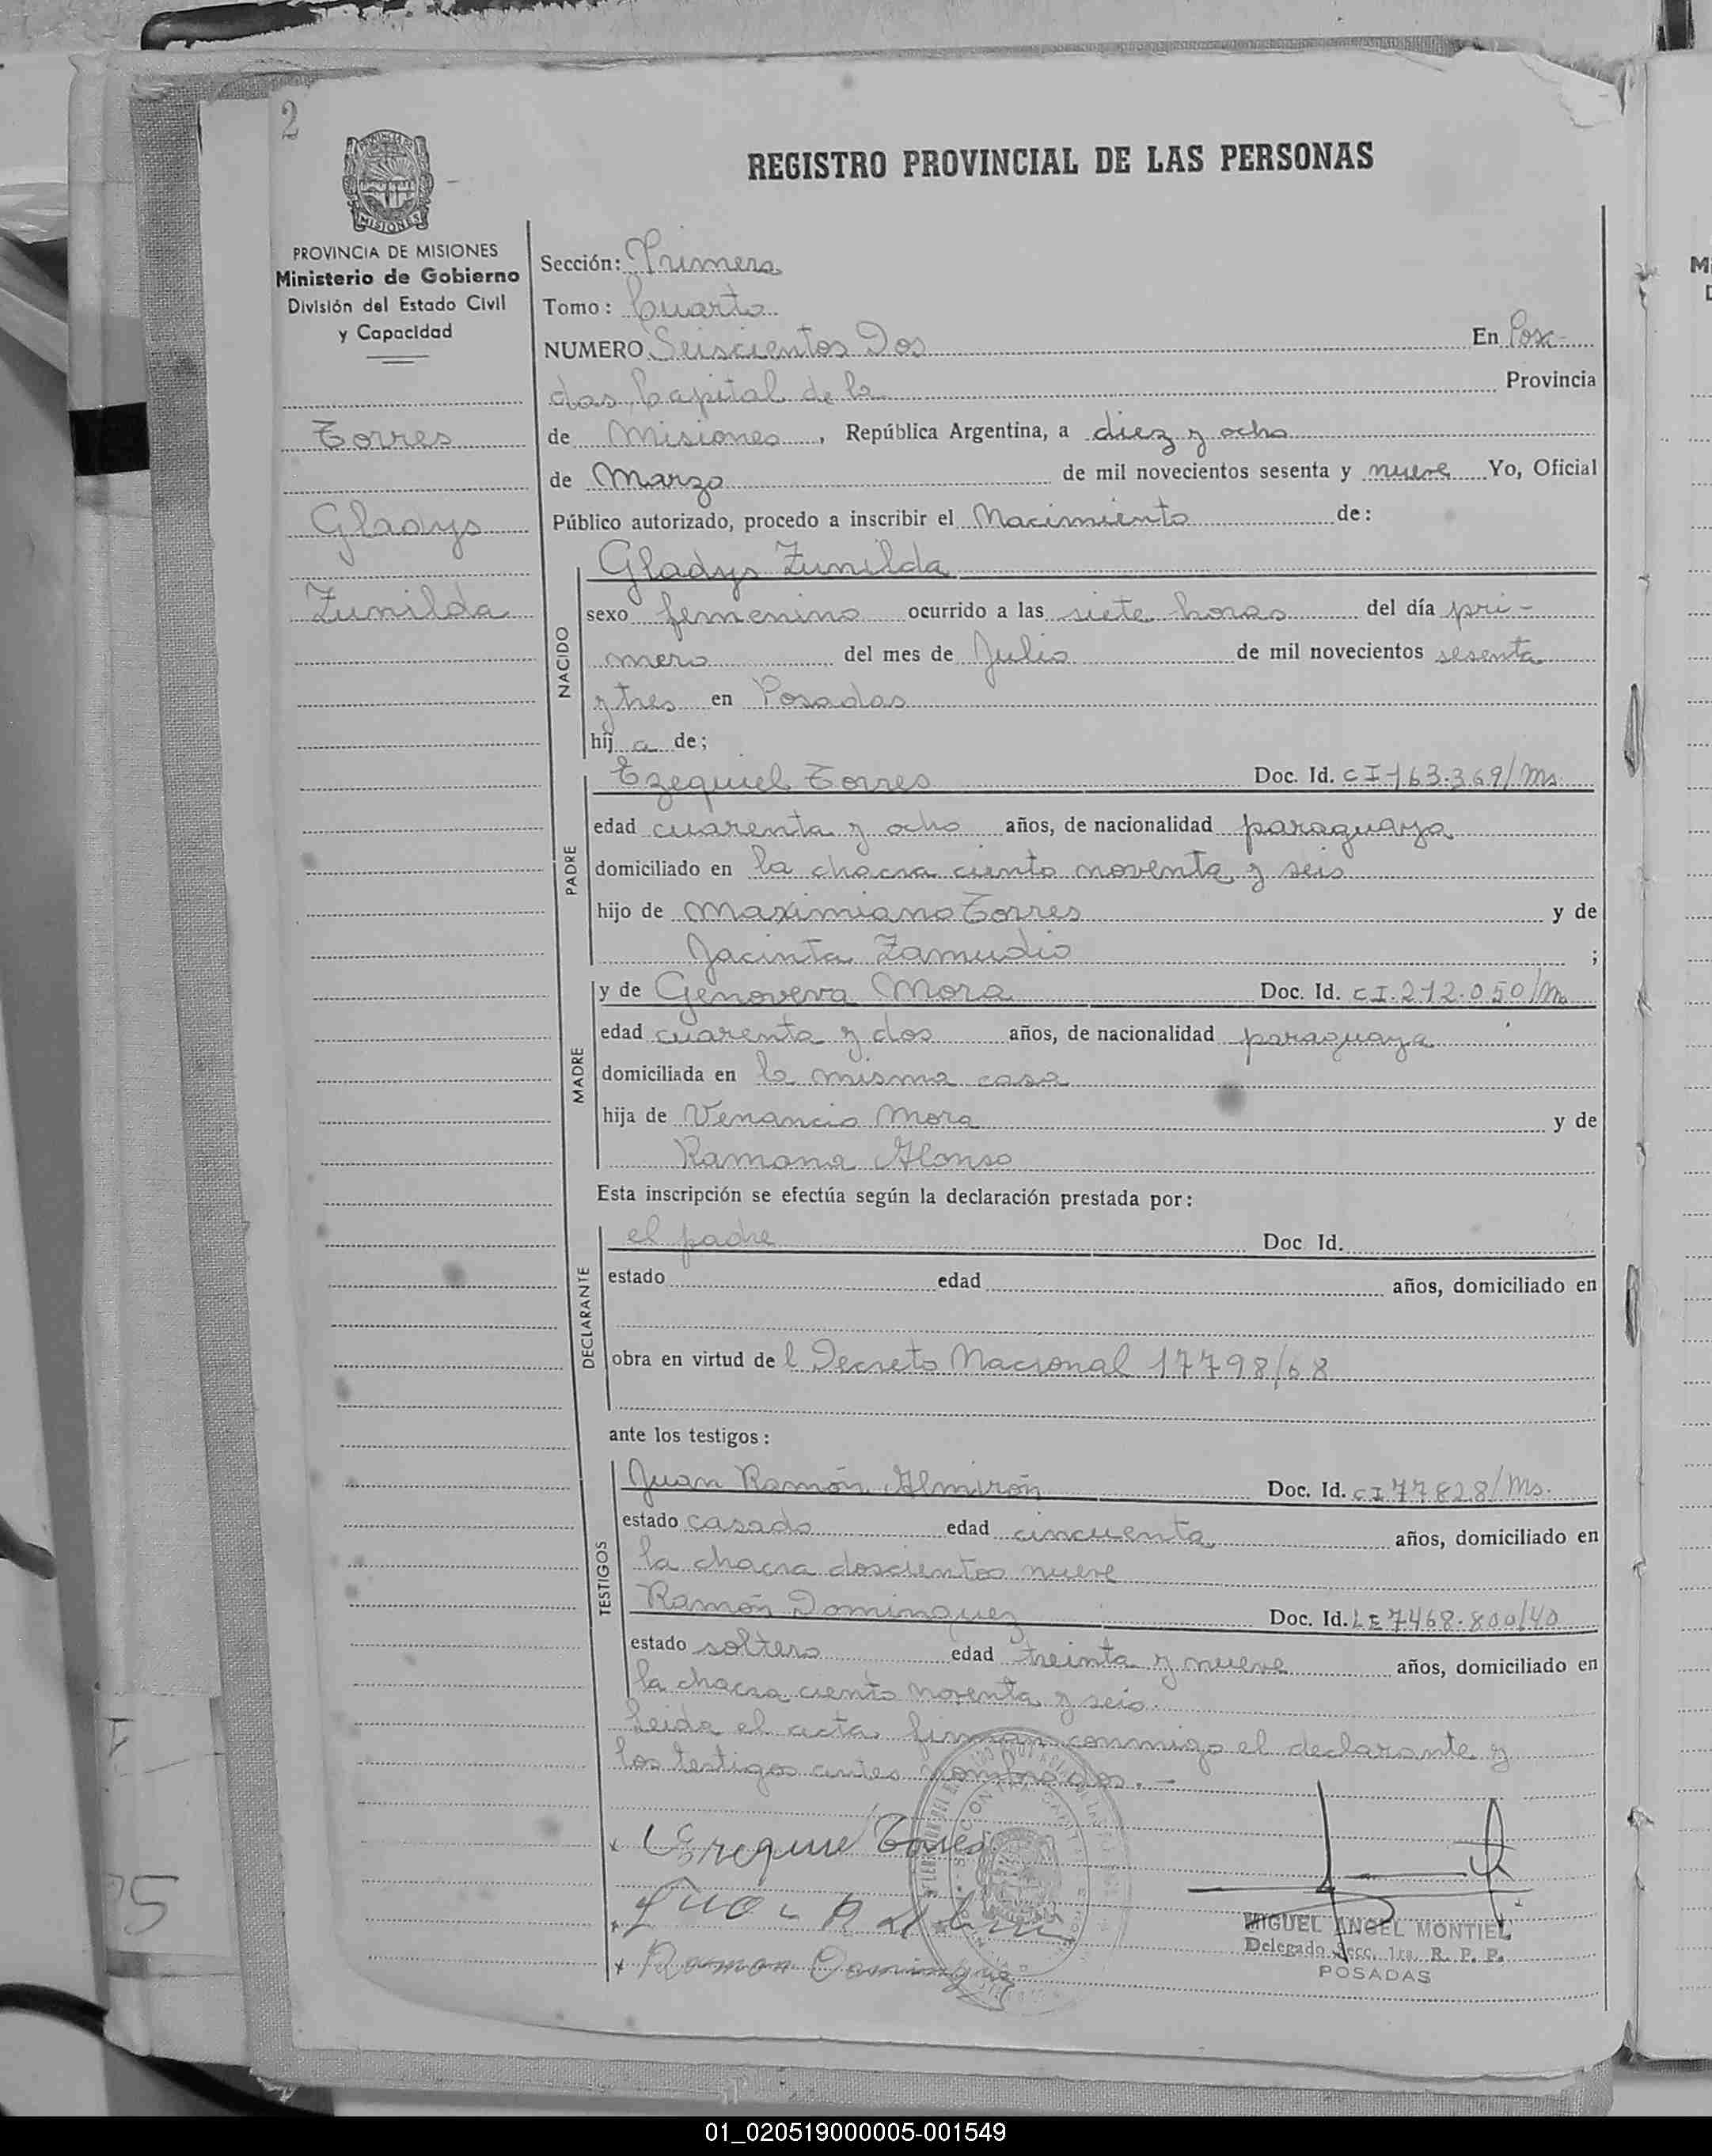 2
PROVINCIA DE MISIONES
Ministerio de Gobierno
División del Estado Civil
y Capacidad
Torres
Gladys
Zunilda
REGISTRO PROVINCIAL DE LAS PERSONAS
Sección: Primera
Tomo: Cuarto
NUMERO Seiscientos Dos En Posa-
das, Capital de la Provincia
de Misiones, República Argentina, a diez y ocho
de Marzo de mil novecientos sesenta y nueve Yo, Oficial
Público autorizado, procedo a inscribir el Nacimiento de:
NACIDO
Gladys Zunilda
sexo femenino ocurrido a las siete horas del día pri-
mero del mes de Julio de mil novecientos sesenta
y tres en Posadas
hij a de;
PADRE
Ezequiel Torres Doc. Id. CI 163.369/Ms.
edad cuarenta y ocho años, de nacionalidad paraguaya
domiciliado en la chacra ciento noventa y seis
hijo de Maximiano Torres y de
Jacinta Zamudio ;
MADRE
y de Genoveva Mora Doc. Id. CI.212.050/Ms
edad cuarenta y dos años, de nacionalidad paraguaya
domiciliada en la misma casa
hija de Venancio Mora y de
Ramona Alonso
Esta inscripción se efectúa según la declaración prestada por:
DECLARANTE
el padre Doc Id.
estado edad años, domiciliado en
obra en virtud de l Decreto Nacional 17798/68
ante los testigos:
TESTIGOS
Juan Ramón Almirón Doc. Id. CI 77828/Ms.
estado casado edad cincuenta años, domiciliado en
la chacra doscientos nueve
Ramón Dominguez Doc. Id. LE 7468.800/40
estado soltero edad treinta y nueve años, domiciliado en
la chacra ciento noventa y seis.
Leida el acta, firman conmigo el declarante y
los testigos antes nombrados.-
Torres
Ramon Dominguez
MIGUEL ANGEL MONTIEL
Delegado Secc. 1ra. R. P. P.
POSADAS
01_020519000005-001549